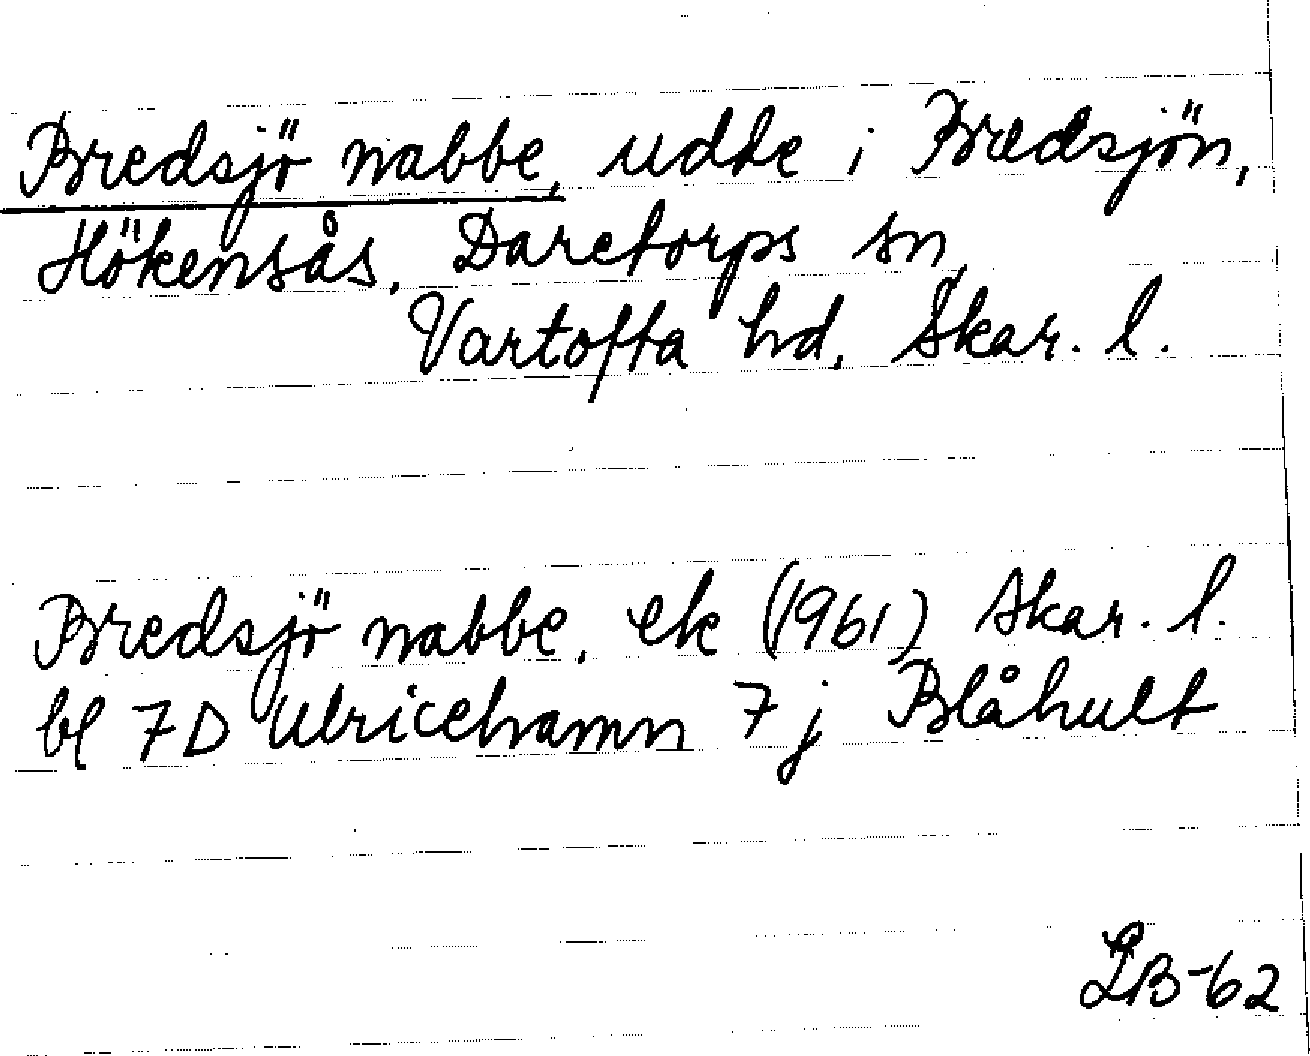 Bredsjö nabbe, udde i Bredsjön,
Hökensås, Daretorps sn,
Vartofta hd, Skar. l.
Bredsjö nabbe, ek (1961) Skar. l.
bl 7D Ulricehamn 7j Blåhult
LB-62